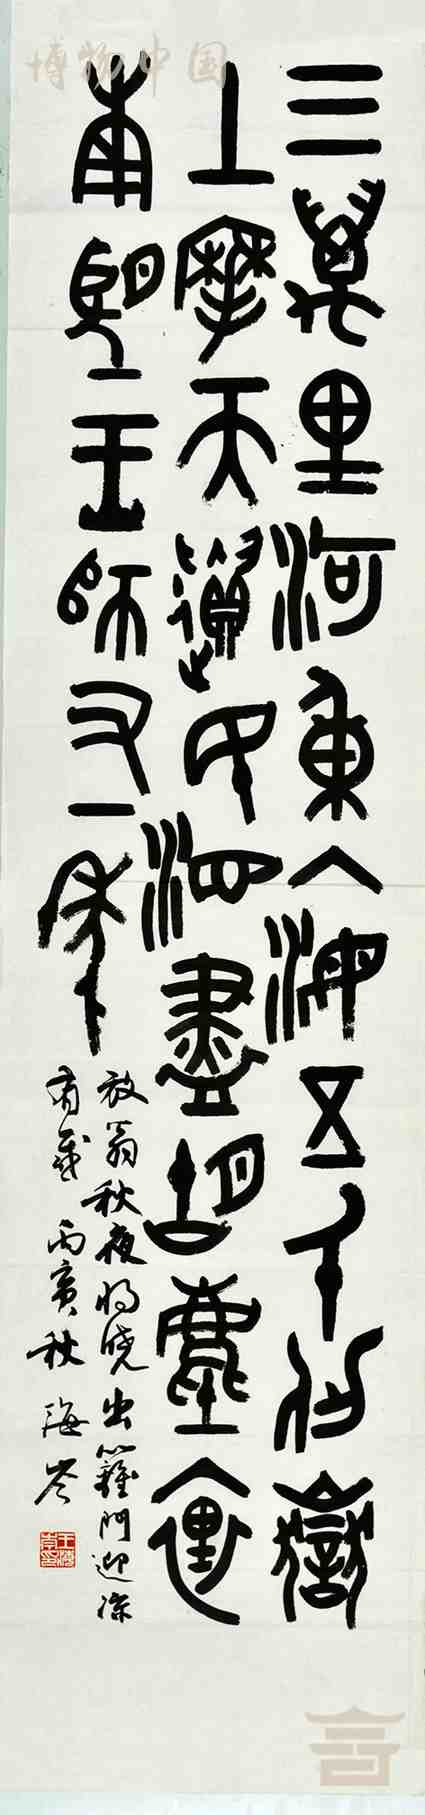 三萬里河東入海五千仞嶽
上摩天遺民淚盡胡塵裏
南望王師又一年
放翁秋夜將曉出籬門迎涼
有感 丙寅秋 海岑
博物中国